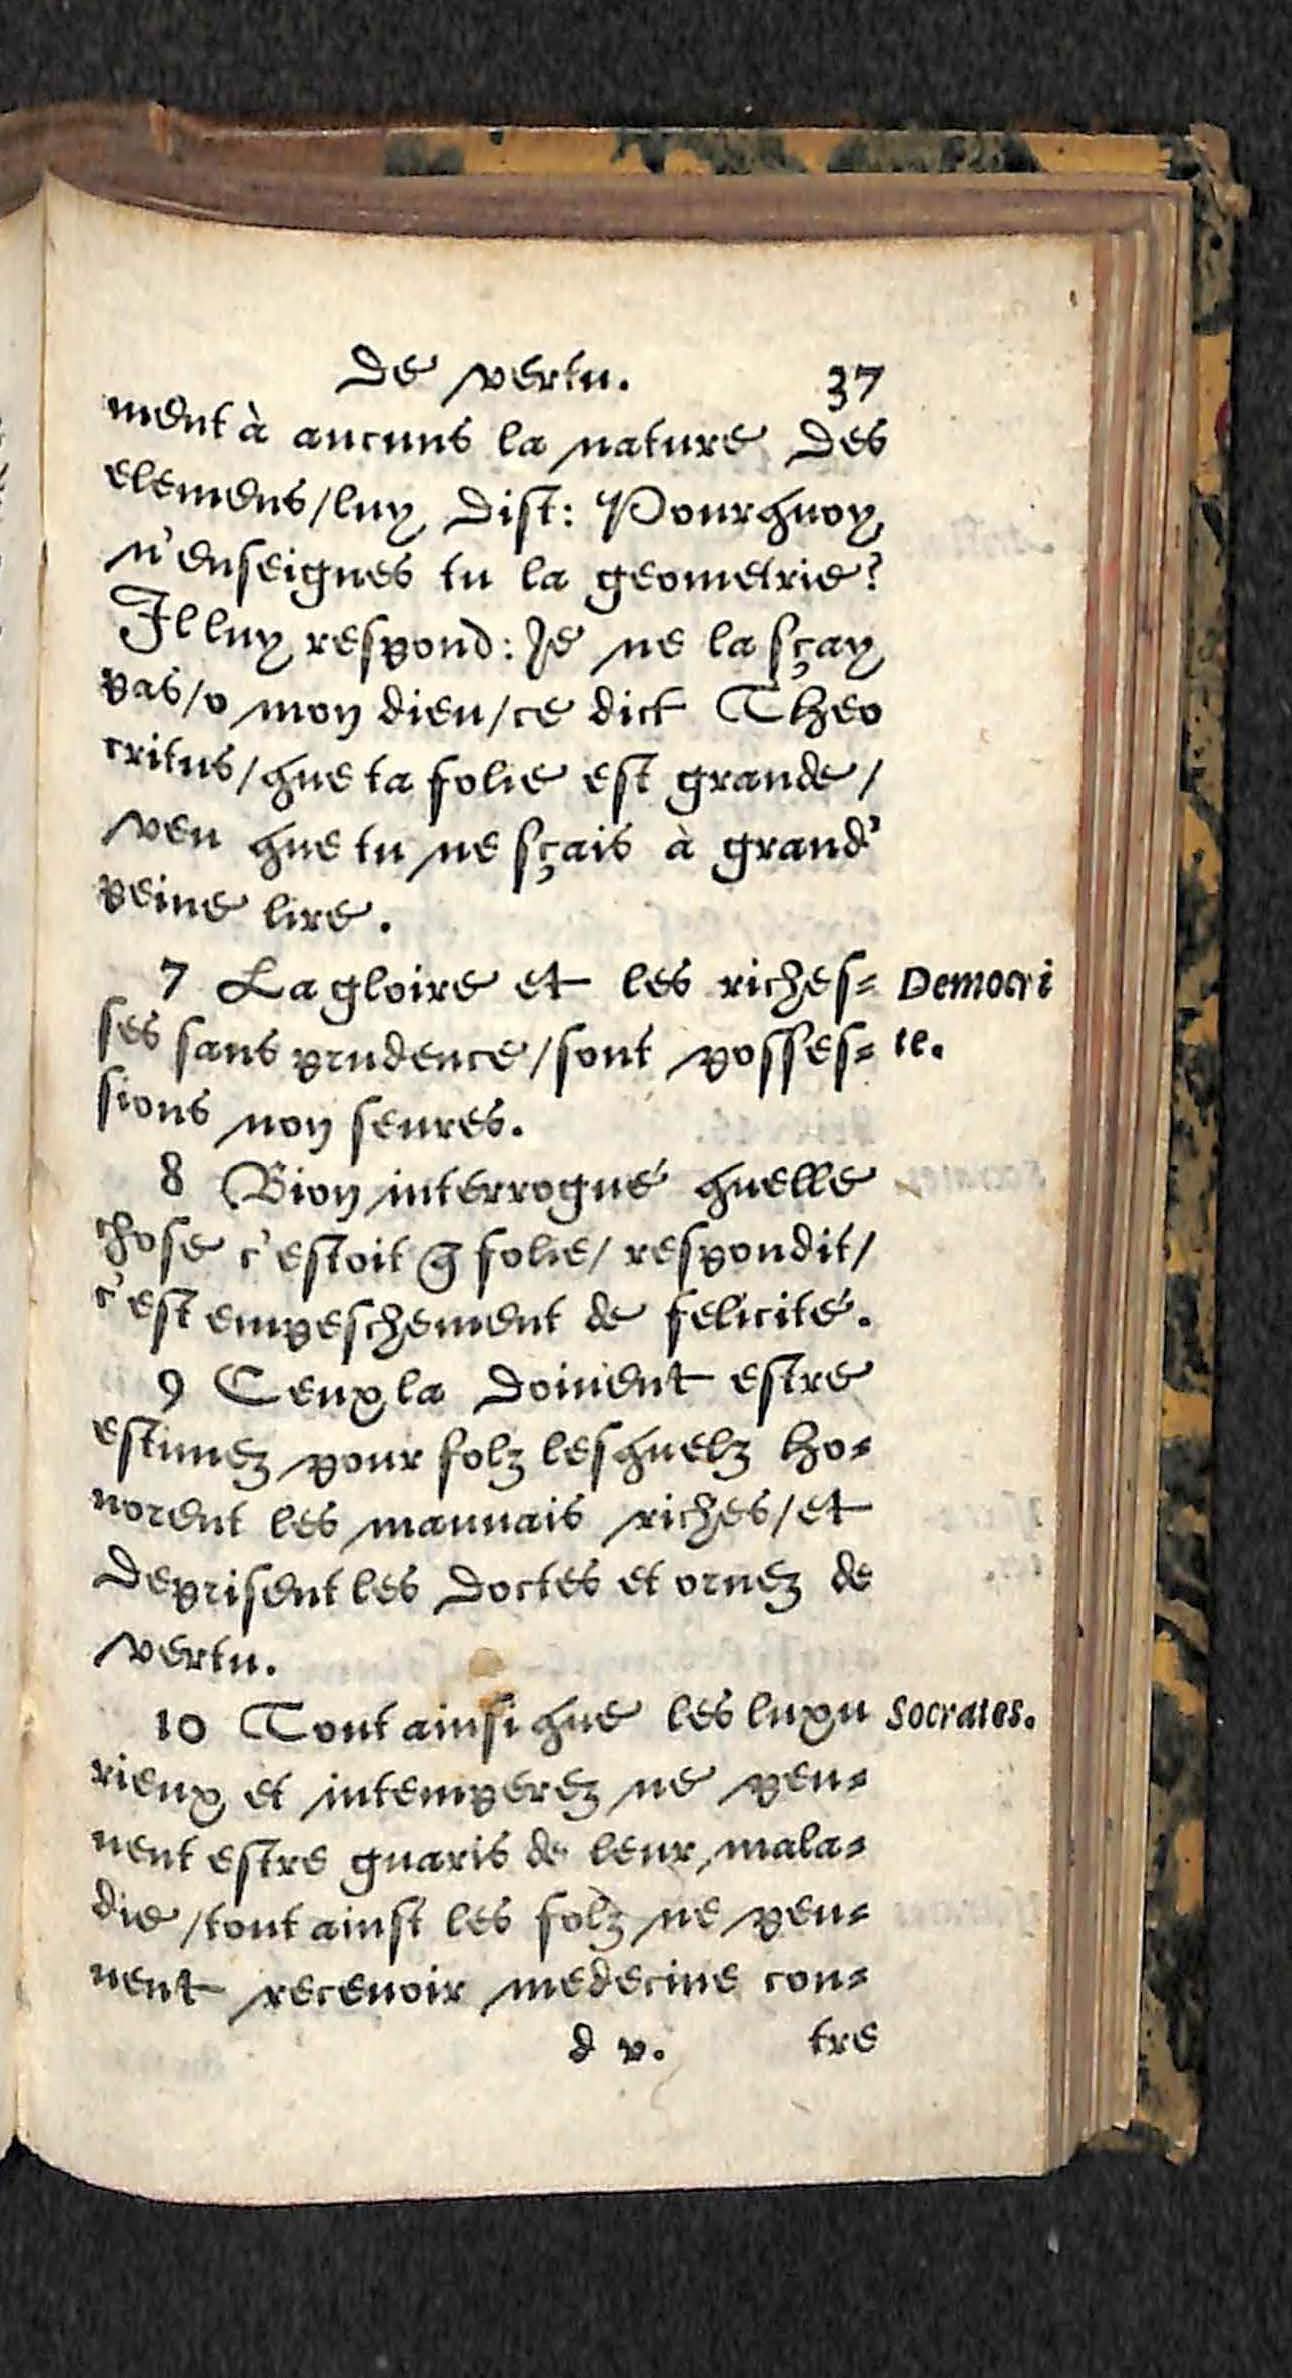 de vertu. 37
ment à aucuns la nature des
elemens/luy dist: Pourquoy
n'enseignes tu la geometrie?
Il luy respond: Je ne la sçay
pas/o mon dieu/ce dict Theo
critus/que ta folie est grande/
veu que tu ne sçais à grand'
peine lire.
7 La gloire et les riches= Democri
ses sans prudence/sont posses= te.
sions non seures.
8 Bion interrogué quelle
chose c'estoit q̃ folie/respondit/
c'est empeschement de felicité.
9 Ceux la doivent estre
estimez pour folz lesquelz ho=
norent les mauvais riches/et
deprisent les doctes et ornez de
vertu.
10 Tout ainsi que les luxu Socrates.
rieux et intemperez ne peu=
vent estre guaris de leur mala=
die/tout ainsi les folz ne peu=
vent recevoir medecine con=
d v. tre